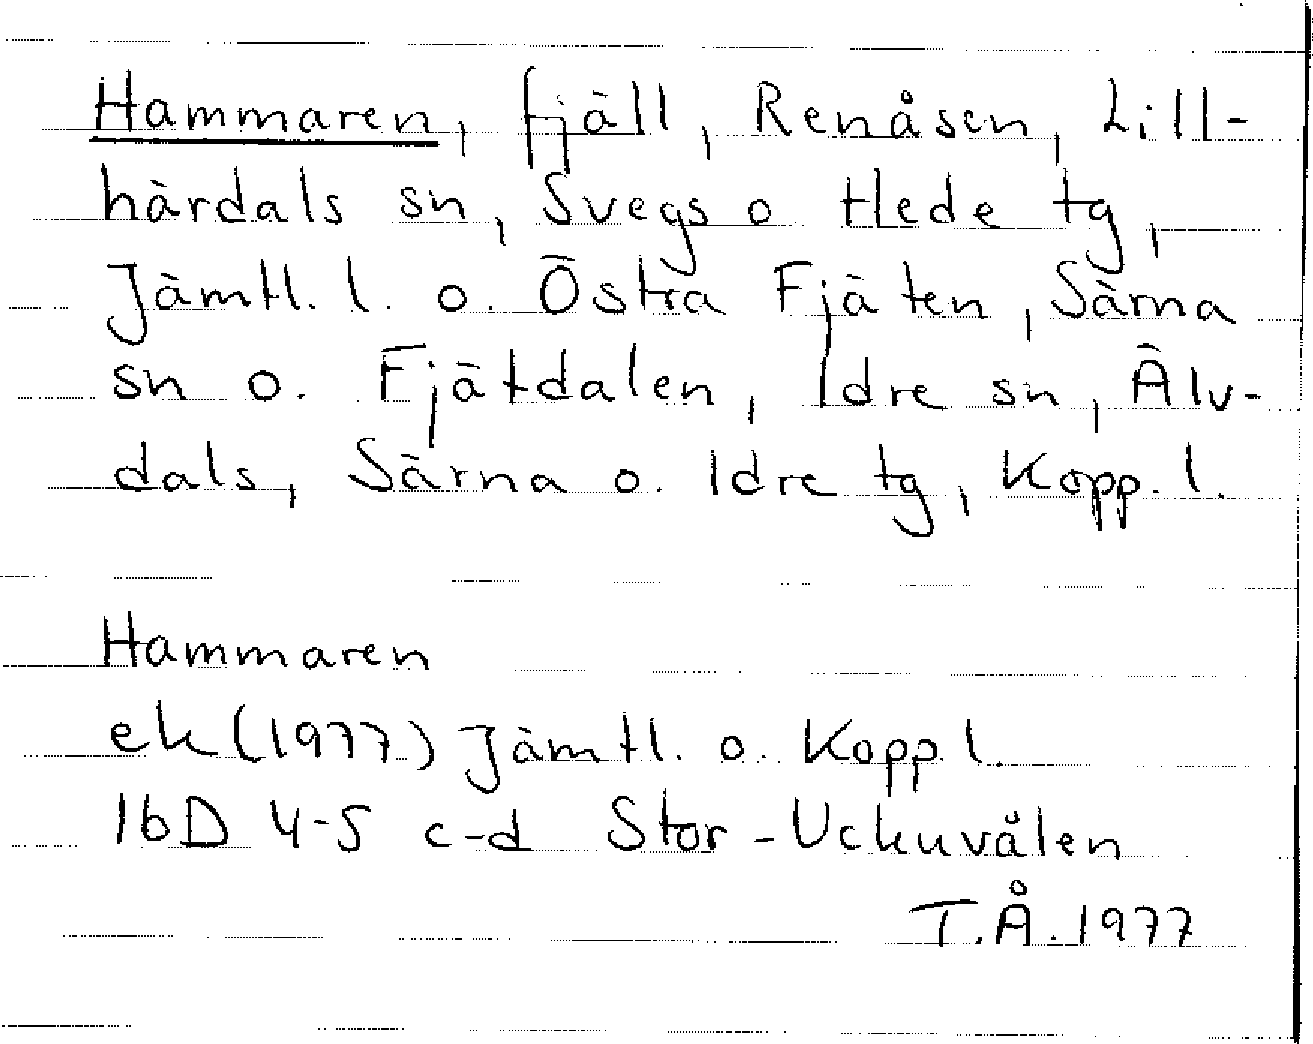 Hammaren, fjäll, Renåsen, Lill-
härdals sn, Svegs o Hede tg,
Jämtl. l. o. Östra Fjäten, Särna
sn o. Fjätdalen, Idre sn, Älv-
dals, Särna o. Idre tg, Kopp. l.
Hammaren
ek (1977) Jämtl. o. Kopp l.
16D 4-5 c-d Stor-Uckuvålen
T.Å. 1977